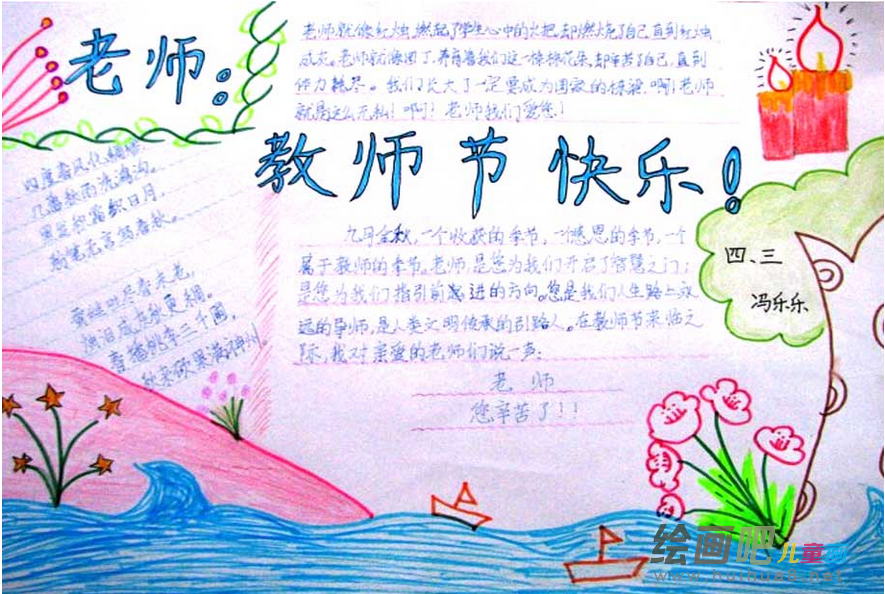 老师:
老师就像红烛,燃起了学生心中的火把,却燃烧了自己直到红烛
成灰。老师就像园丁,养育着我们这一棵棵花朵,却辛苦了自己,直到
精力耗尽。我们长大了一定要成为国家的栋梁,啊!老师
就是这么无私!啊!老师我们爱您!
教师节快乐!
四度春风化绸缪
几番秋雨洗鸿沟。
黑发积霜织日月
粉笔无言写春秋。
蚕丝吐尽春未老,
烛泪成灰秋更稠。
春播桃李三千圃,
秋来硕果满神州。
九月金秋,一个收获的季节,一个感恩的季节,一个
属于教师的季节。老师,是您为我们开启了智慧之门;
是您为我们指引前进的方向。您是我们人生路上永
远的导师,是人类文明传承的引路人。在教师节来临之
际,我对亲爱的老师们说一声:
老师
您辛苦了!!
四、三
冯乐乐
绘画吧儿童
www.huihua8.net